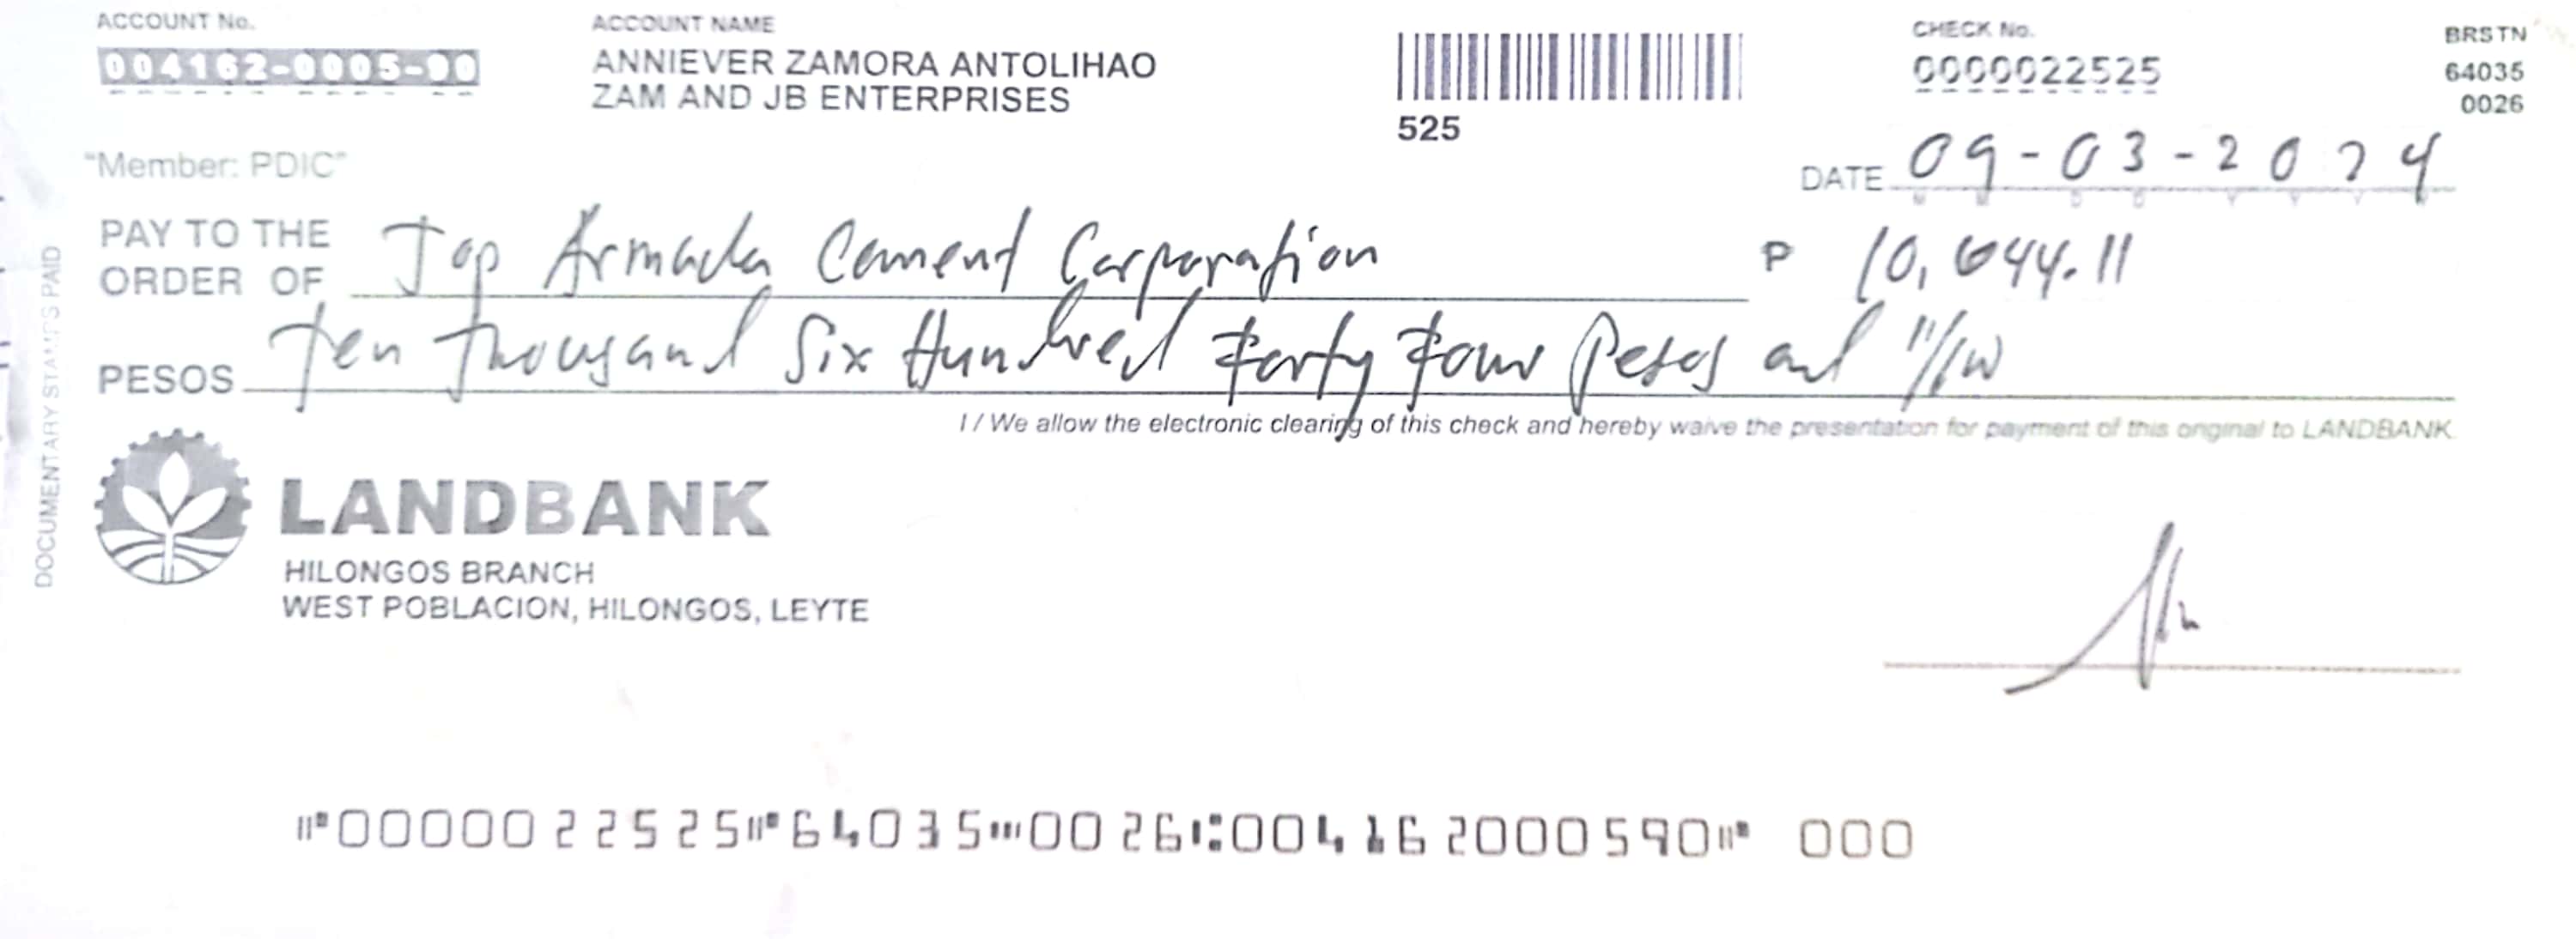 ACCOUNT No.
004162-0005-90
ACCOUNT NAME
ANNIEVER ZAMORA ANTOLIHAO
ZAM AND JB ENTERPRISES
525
CHECK No.
0000022525
BRSTN
64035
0026
"Member: PDIC"
DATE 09-03-2024
M M D D Y Y Y Y
PAY TO THE
ORDER OF Top Armada Cement Corporation
P 10,644.11
PESOS Ten Thousand Six Hundred Forty Four Pesos and 11/100
I / We allow the electronic clearing of this check and hereby waive the presentation for payment of this original to LANDBANK.
DOCUMENTARY STAMPS PAID
LANDBANK
HILONGOS BRANCH
WEST POBLACION, HILONGOS, LEYTE
⑈0000022525⑈64035⑉0026⑆004162000590⑈ 000